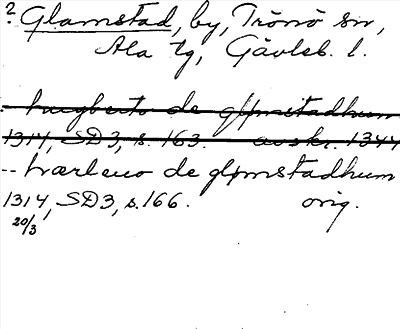 ? Glamstad, by, Trönö sn,
Ala tg, Gävleb. l.
: hugberto de glømstadhum
1314, SD3, s. 163. avskr. 1344
-- hærleuo de glømstadhum
1314, SD3, s. 166. orig.
20/3